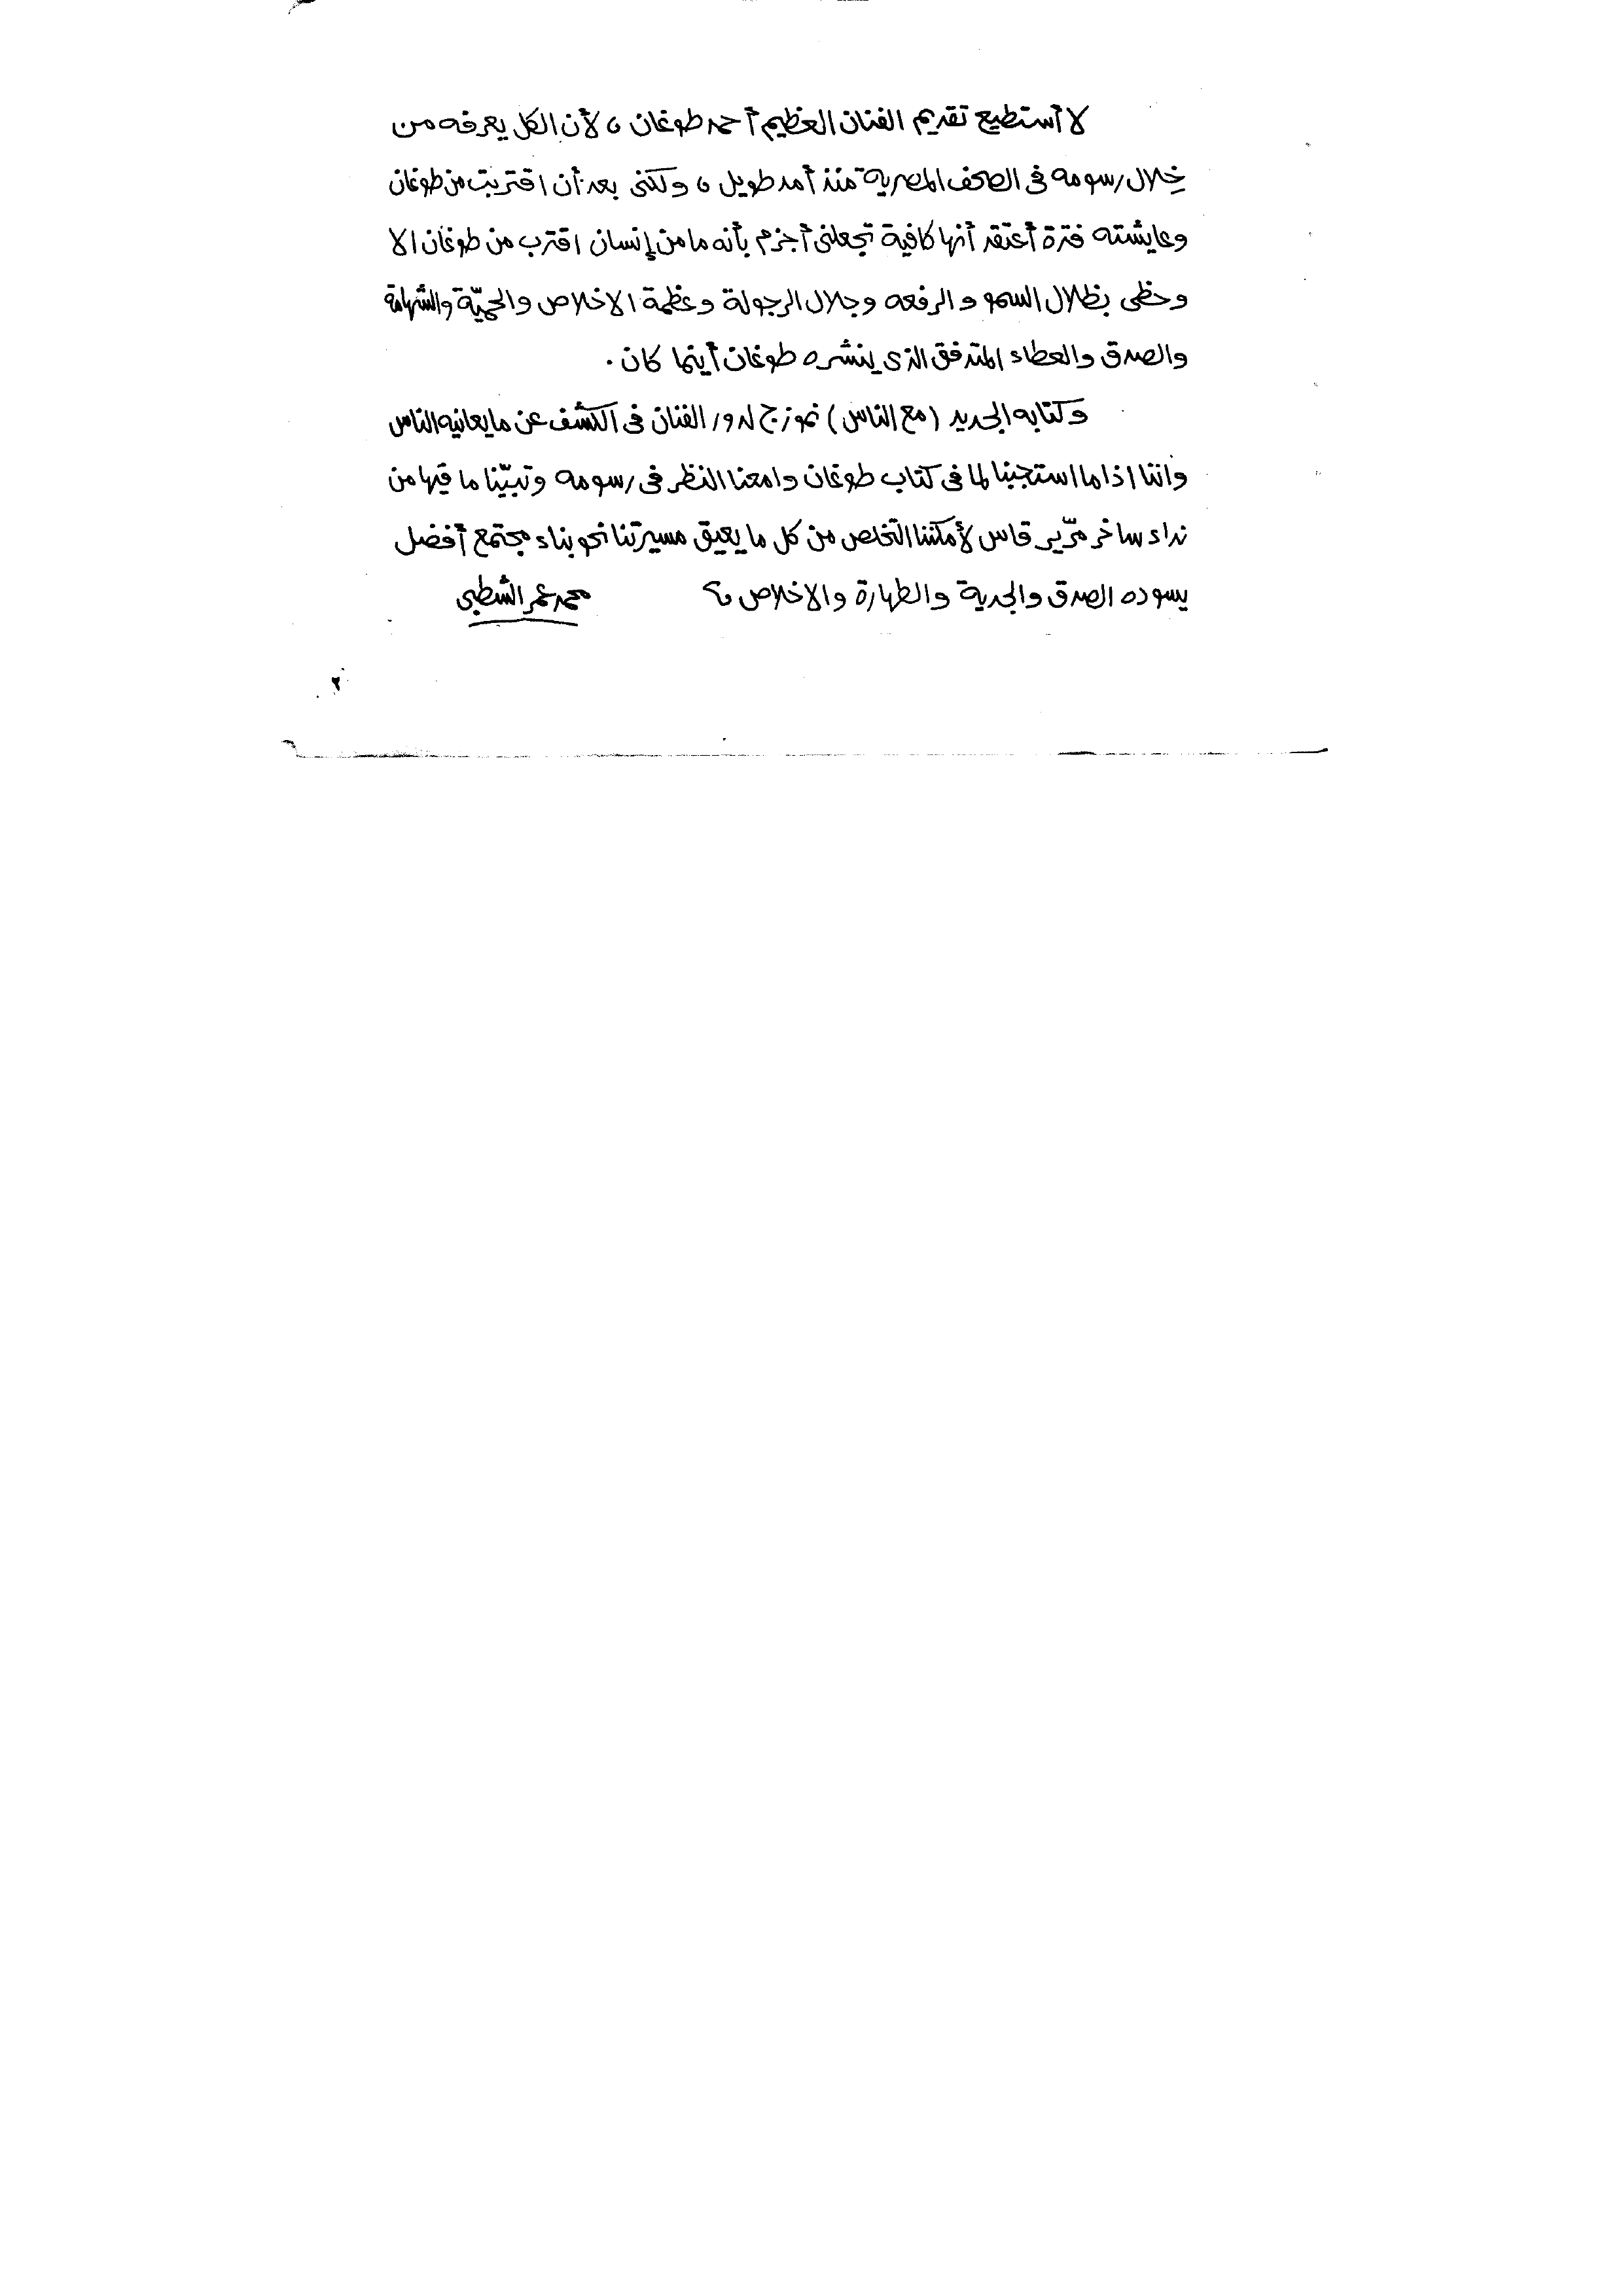 لا أستطيع تقديم الفنان العظيم أحمد طوغان ، لأن الكل يعرفه من
خلال رسومه فى الصحف المصرية منذ أمد طويل ، ولكنى بعد أن اقتربت من طوغان
وعايشته فترة أعتقد أنها كافية تجعلنى أجزم بأنه ما من إنسان اقترب من طوغان الا
وحظى بظلال السمو والرفعه وجلال الرجولة وعظمة الاخلاص والحميّة والشهامة
والصدق والعطاء المتدفق الذى ينشره طوغان أينما كان .
وكتابه الجديد (مع الناس) نموزج لدور الفنان فى الكشف عن ما يعانيه الناس
واننا اذا ما استجبنا لما فى كتاب طوغان وامعنا النظر فى رسومه وتبيّنا ما فيها من
نداء ساخر مرّير قاس لأمكننا التخلص من كل ما يعيق مسيرتنا نحو بناء مجتمع أفضل
يسوده الصدق والجدية والطهارة والاخلاص
محمد عمر الشطبى
٢